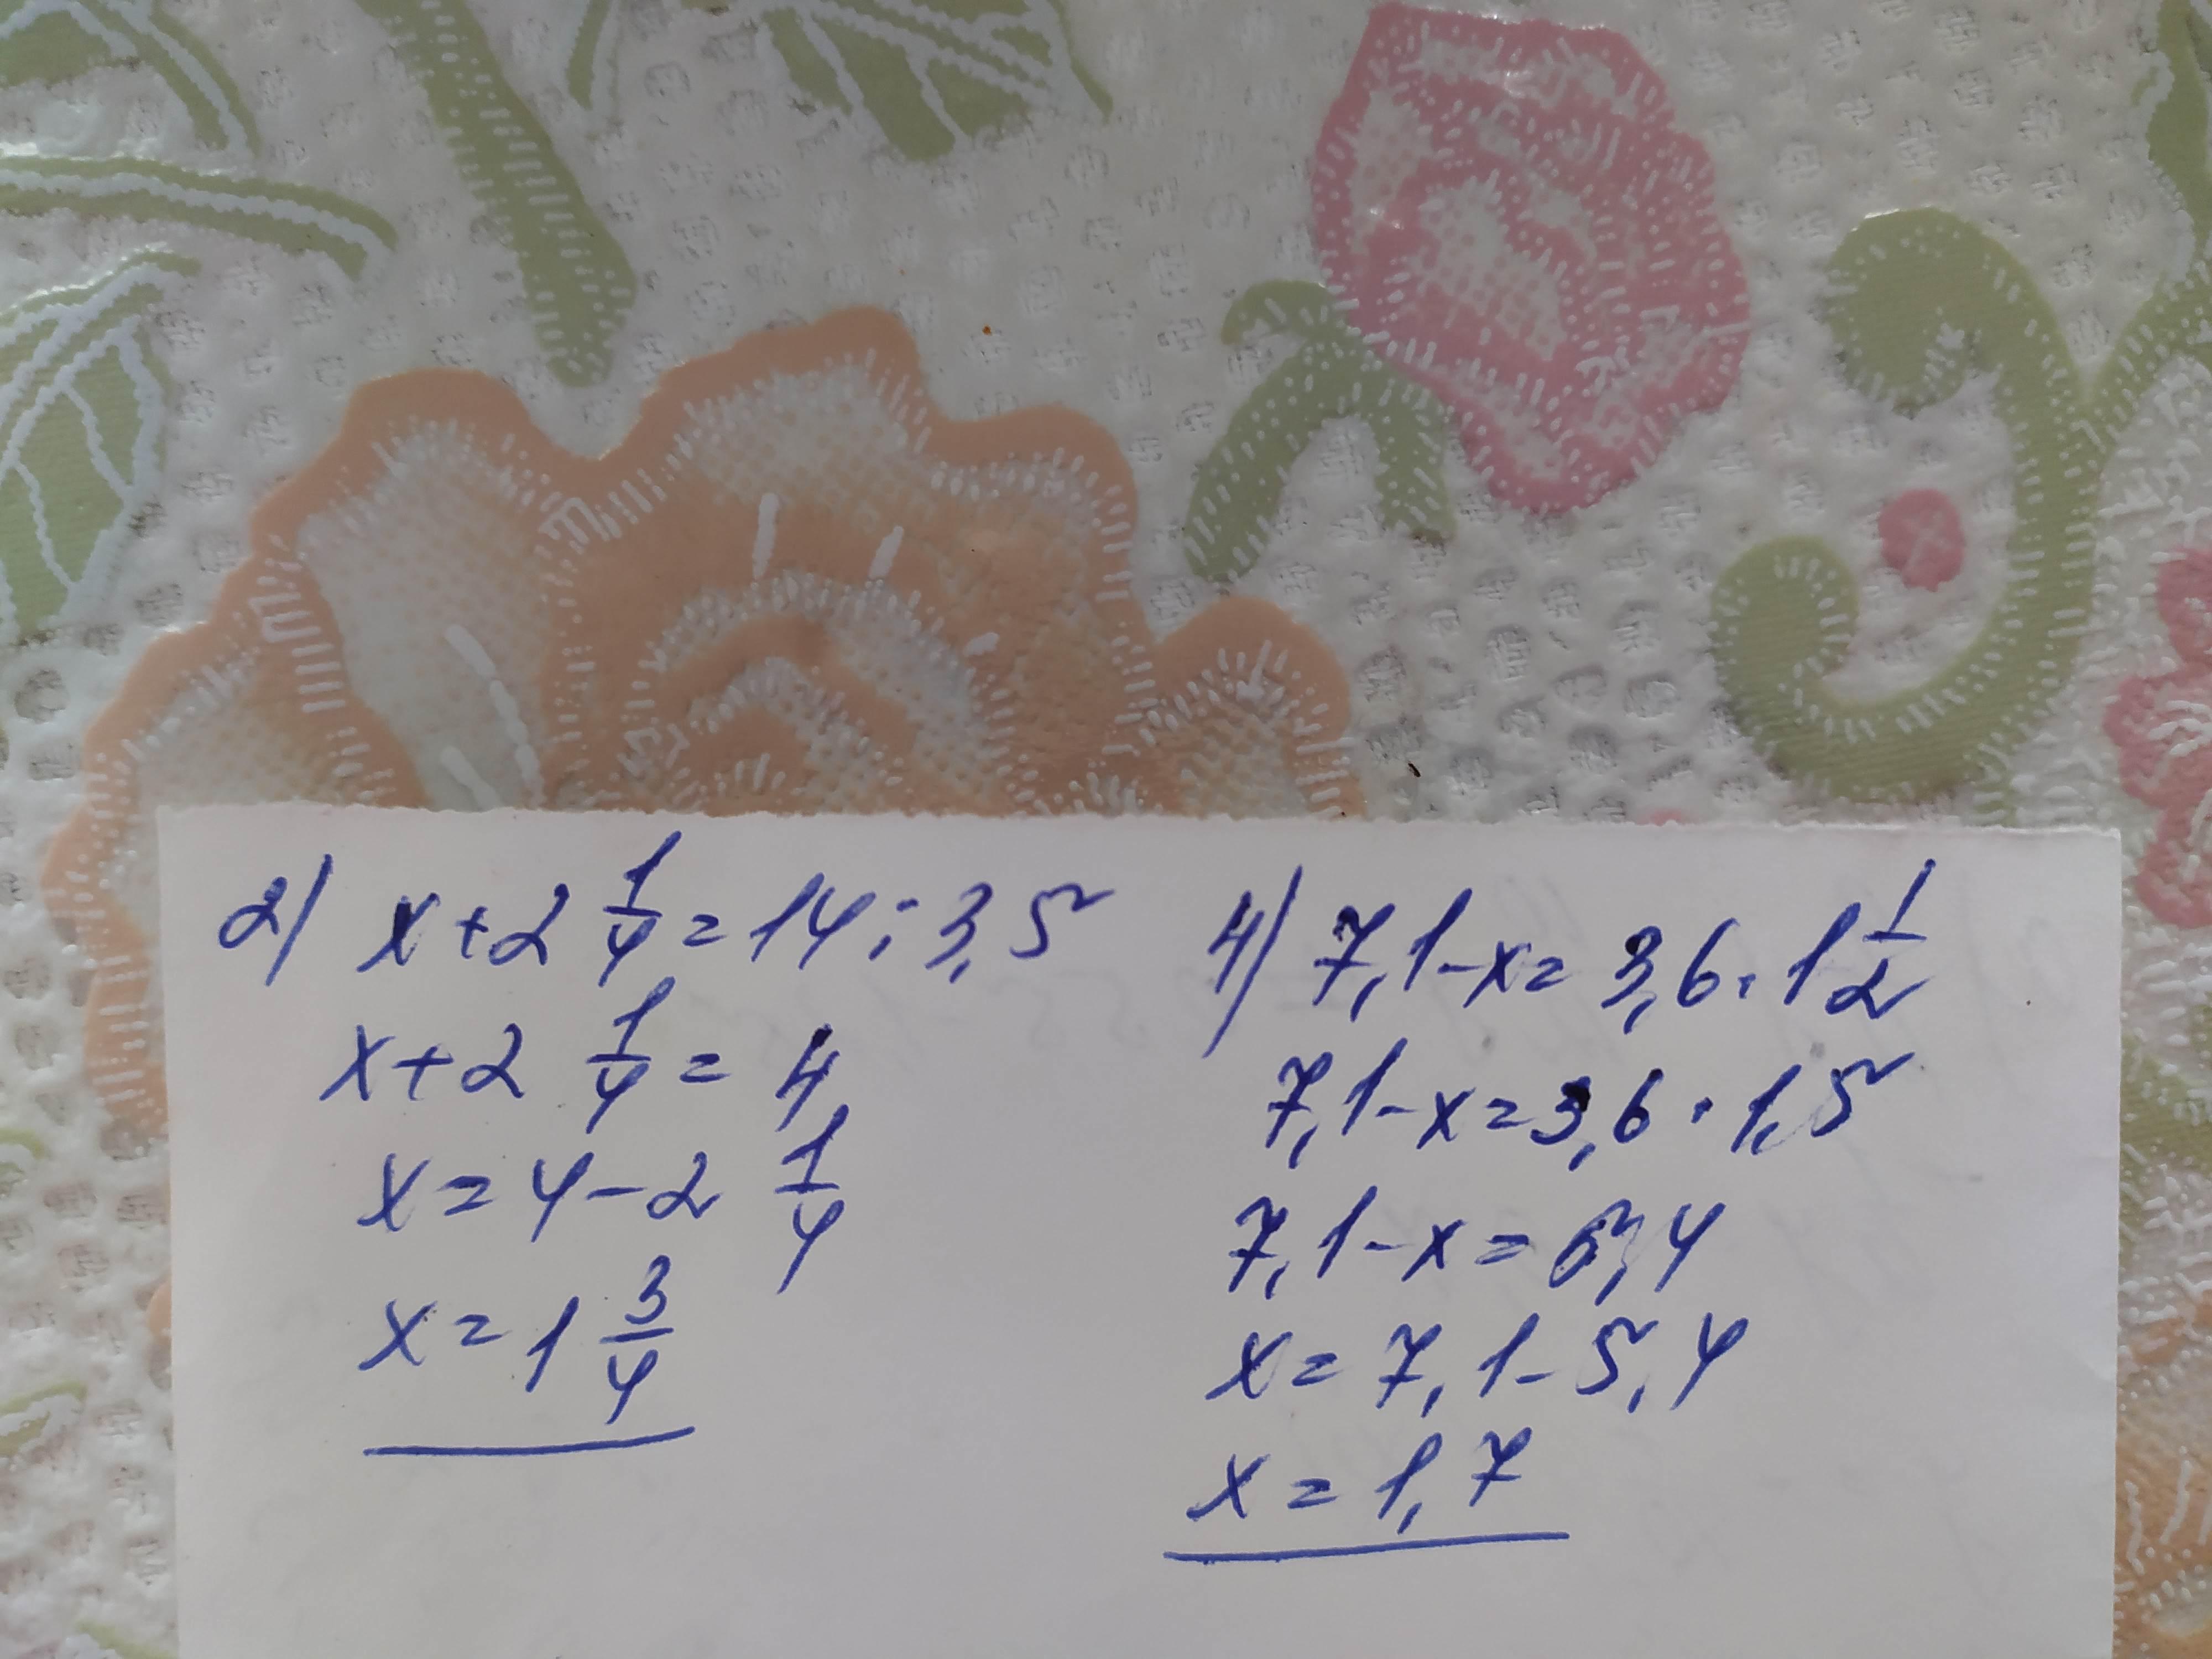 2) x + 2 1/4 = 14 : 3,5
x + 2 1/4 = 4
x = 4 - 2 1/4
x = 1 3/4
4) 7,1 - x = 3,6 · 1 1/2
7,1 - x = 3,6 · 1,5
7,1 - x = 5,4
x = 7,1 - 5,4
x = 1,7